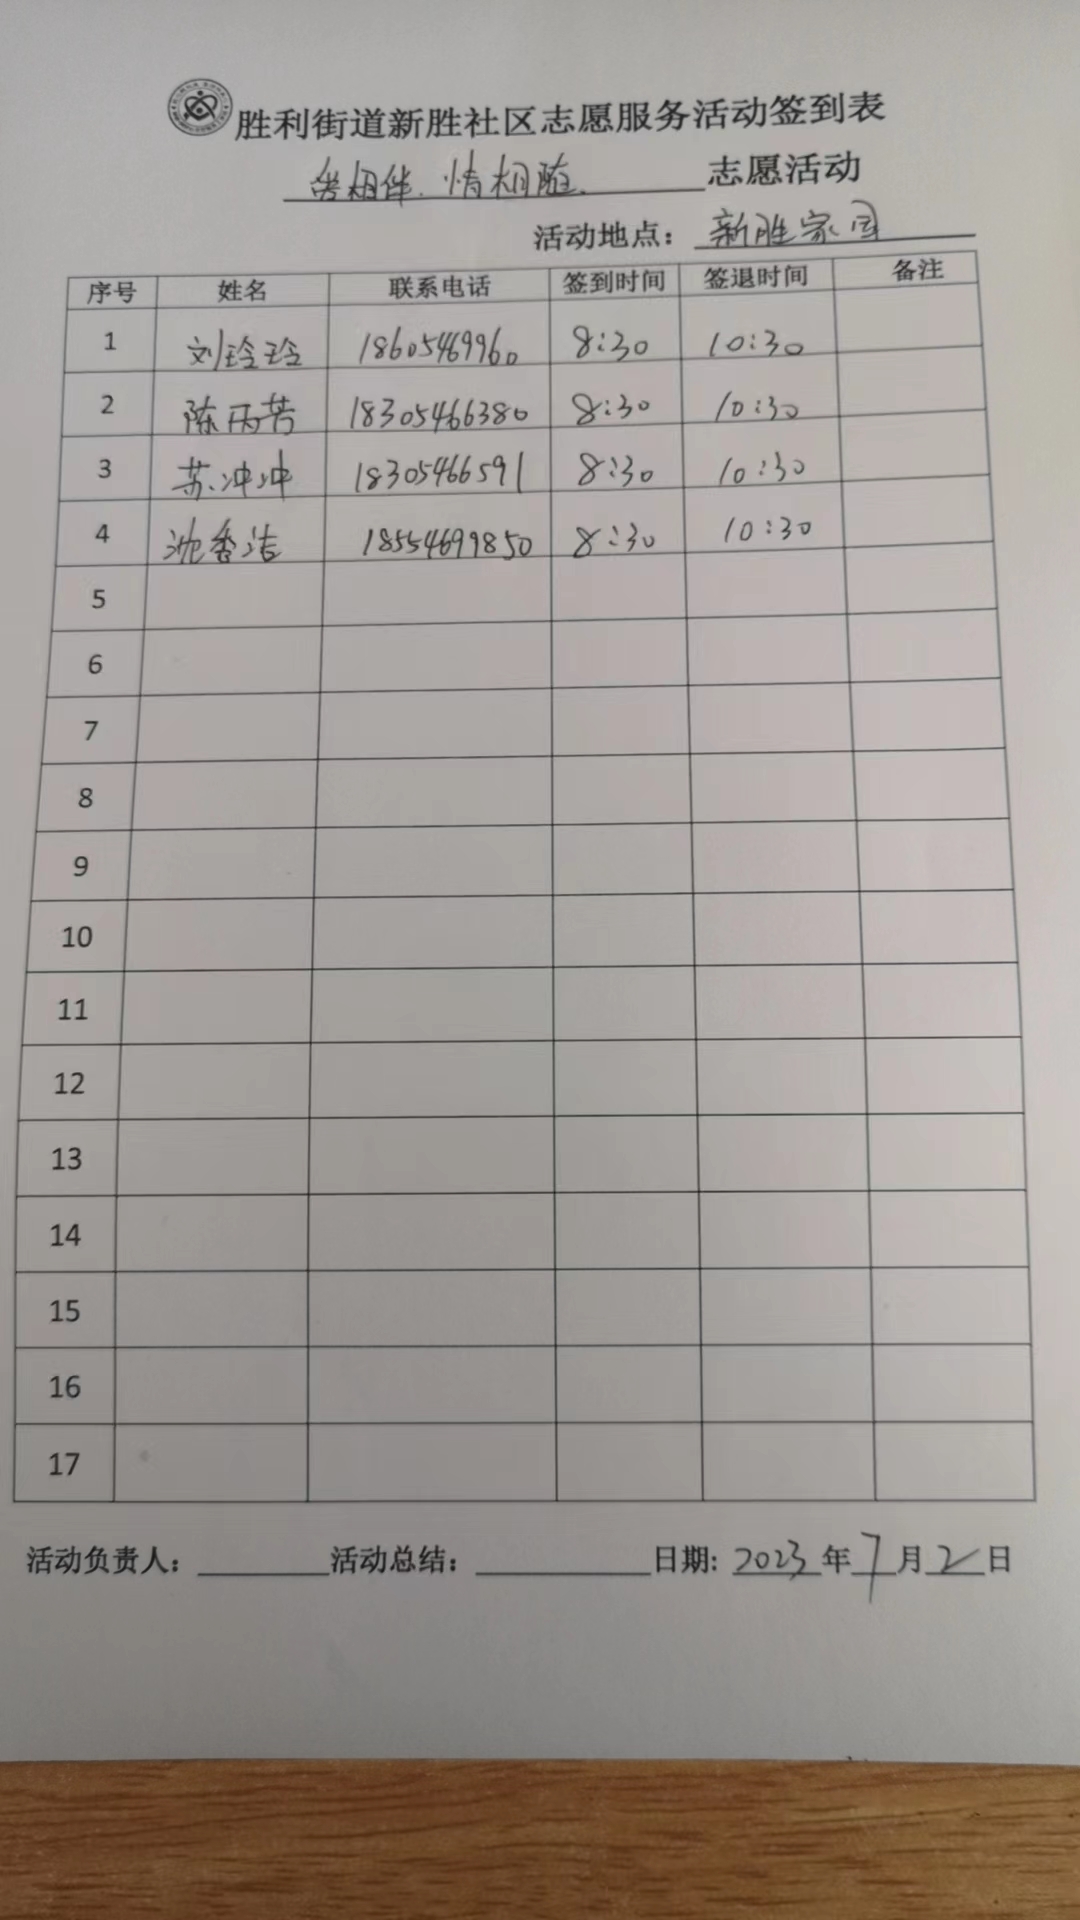 胜利街道新胜社区志愿服务活动签到表
相伴.情相随. 志愿活动
活动地点：新胜家园
序号 姓名 联系电话 签到时间 签退时间 备注
1 刘玲玲 18605469960 8:30 10:30
2 陈丙芳 18305466380 8:30 10:30
3 苏冲冲 18305466591 8:30 10:30
4 沈香洁 18554699850 8:30 10:30
5
6
7
8
9
10
11
12
13
14
15
16
17
活动负责人： 活动总结： 日期: 2023年7月2日